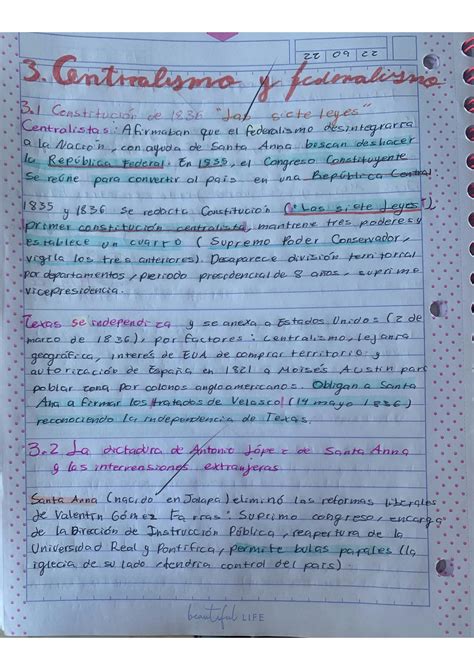 22 09 22
3. Centralismo y federalismo
3.1 Constitución de 1836 "Las siete leyes"
Centralistas: Afirmaban que el federalismo desintegrarra
a la Nación, con ayuda de Santa Anna buscan deshacer
la República Federal. En 1835, el Congreso Constituyente
se reúne para convertir al país en una República Central
1835 y 1836 se redacta Constitución ("Las siete Leyes"),
primer constitución centralista, mantiene tres poderes y
establece un cuarto (Supremo Poder Conservador,
vigila los tres anteriores). Desaparece división territorial
por departamentos, periodo presidencial de 8 años, suprime
vicepresidencia.
Texas se independiza y se anexa a Estados Unidos (2 de
marzo de 1836), por factores: centralismo, lejanía
geográfica, interés de EUA de comprar territorio y
autorización de España en 1821 a Moisés Austin para
poblar zona por colonos angloamericanos. Obligan a Santa
Ana a firmar los tratados de Velasco (14 mayo 1836)
reconociendo la independencia de Texas.
3.2 La dictadura de Antonio López de Santa Anna
y las intervensiones extranjeras
Santa Anna (nacido en Jalapa) eliminó las reformas liberales
de Valentín Gómez Farras: Suprimo congreso, encarga
de la Dirección de Instrucción Pública, reapertura de la
Universidad Real y Pontifica, permite bulas papales (la
iglecia de su lado, tendría control del país).
beautiful LIFE